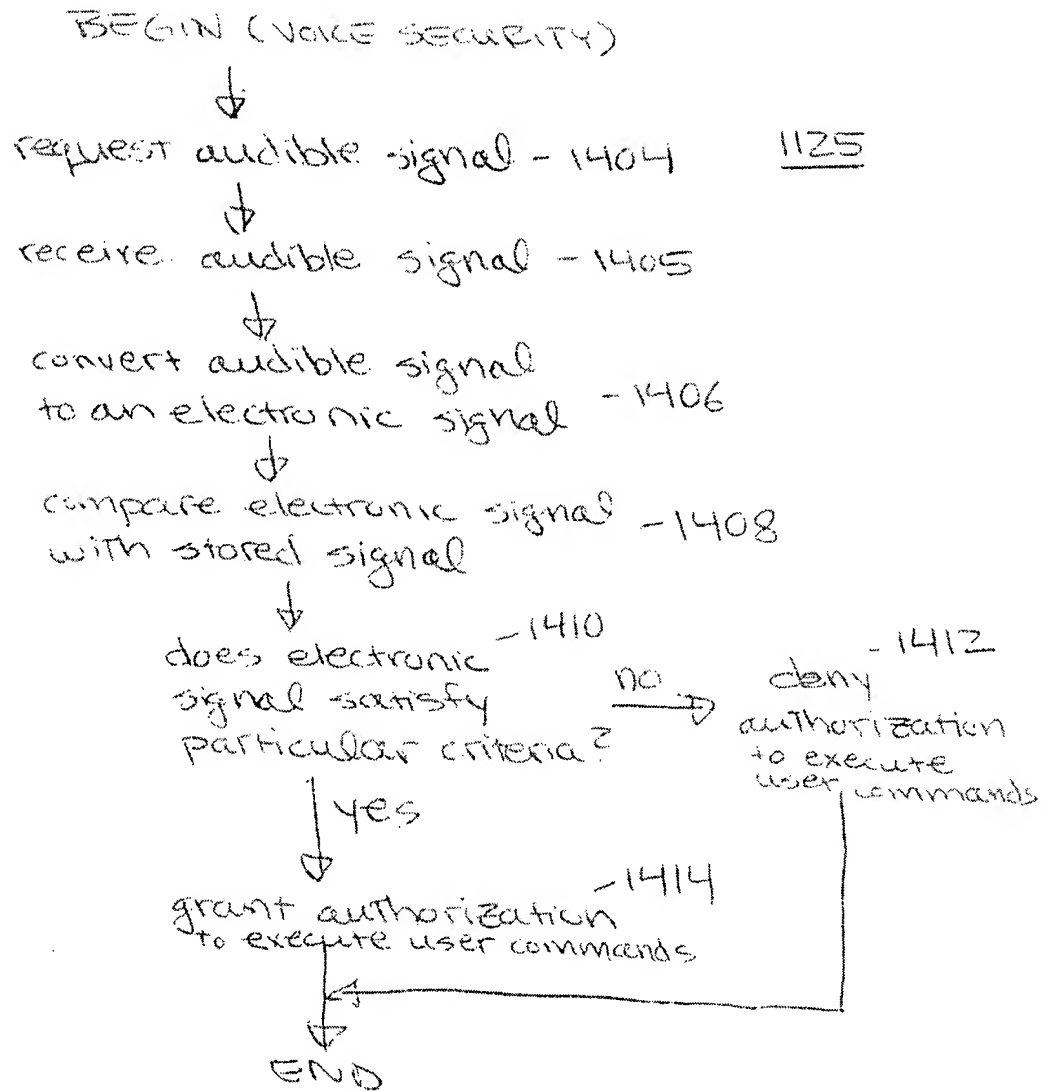 BEGIN (VOICE SECURITY)
request audible signal - 1404 1125
receive audible signal - 1405
convert audible signal
to an electronic signal - 1406
compare electronic signal
with stored signal - 1408
does electronic - 1410
signal satisfy
particular criteria?
no
deny - 1412
authorization
to execute
user commands
yes
grant authorization - 1414
to execute user commands
END